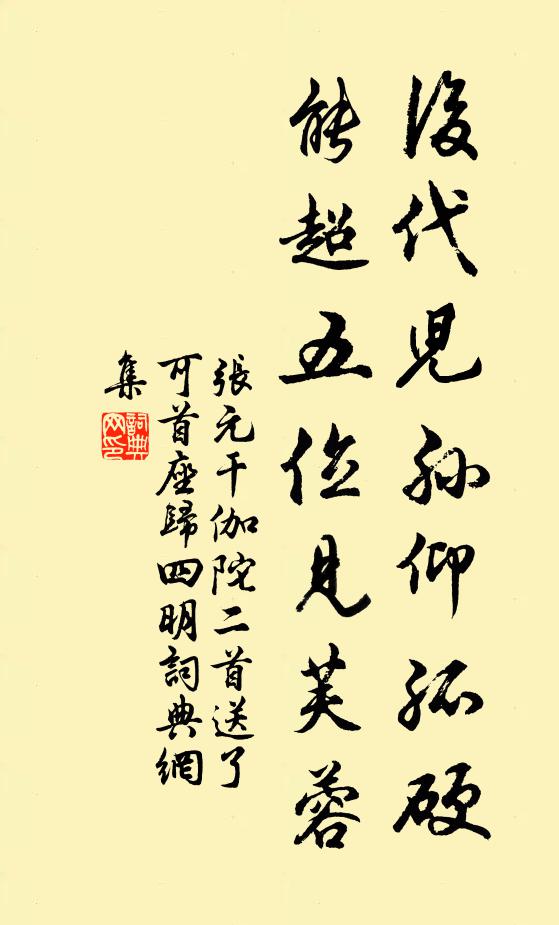 後代兒孫仰孤硬
能超五位見芙蓉
張元干伽陀二首送了
可首座歸四明詞典網
集
詞典
网印